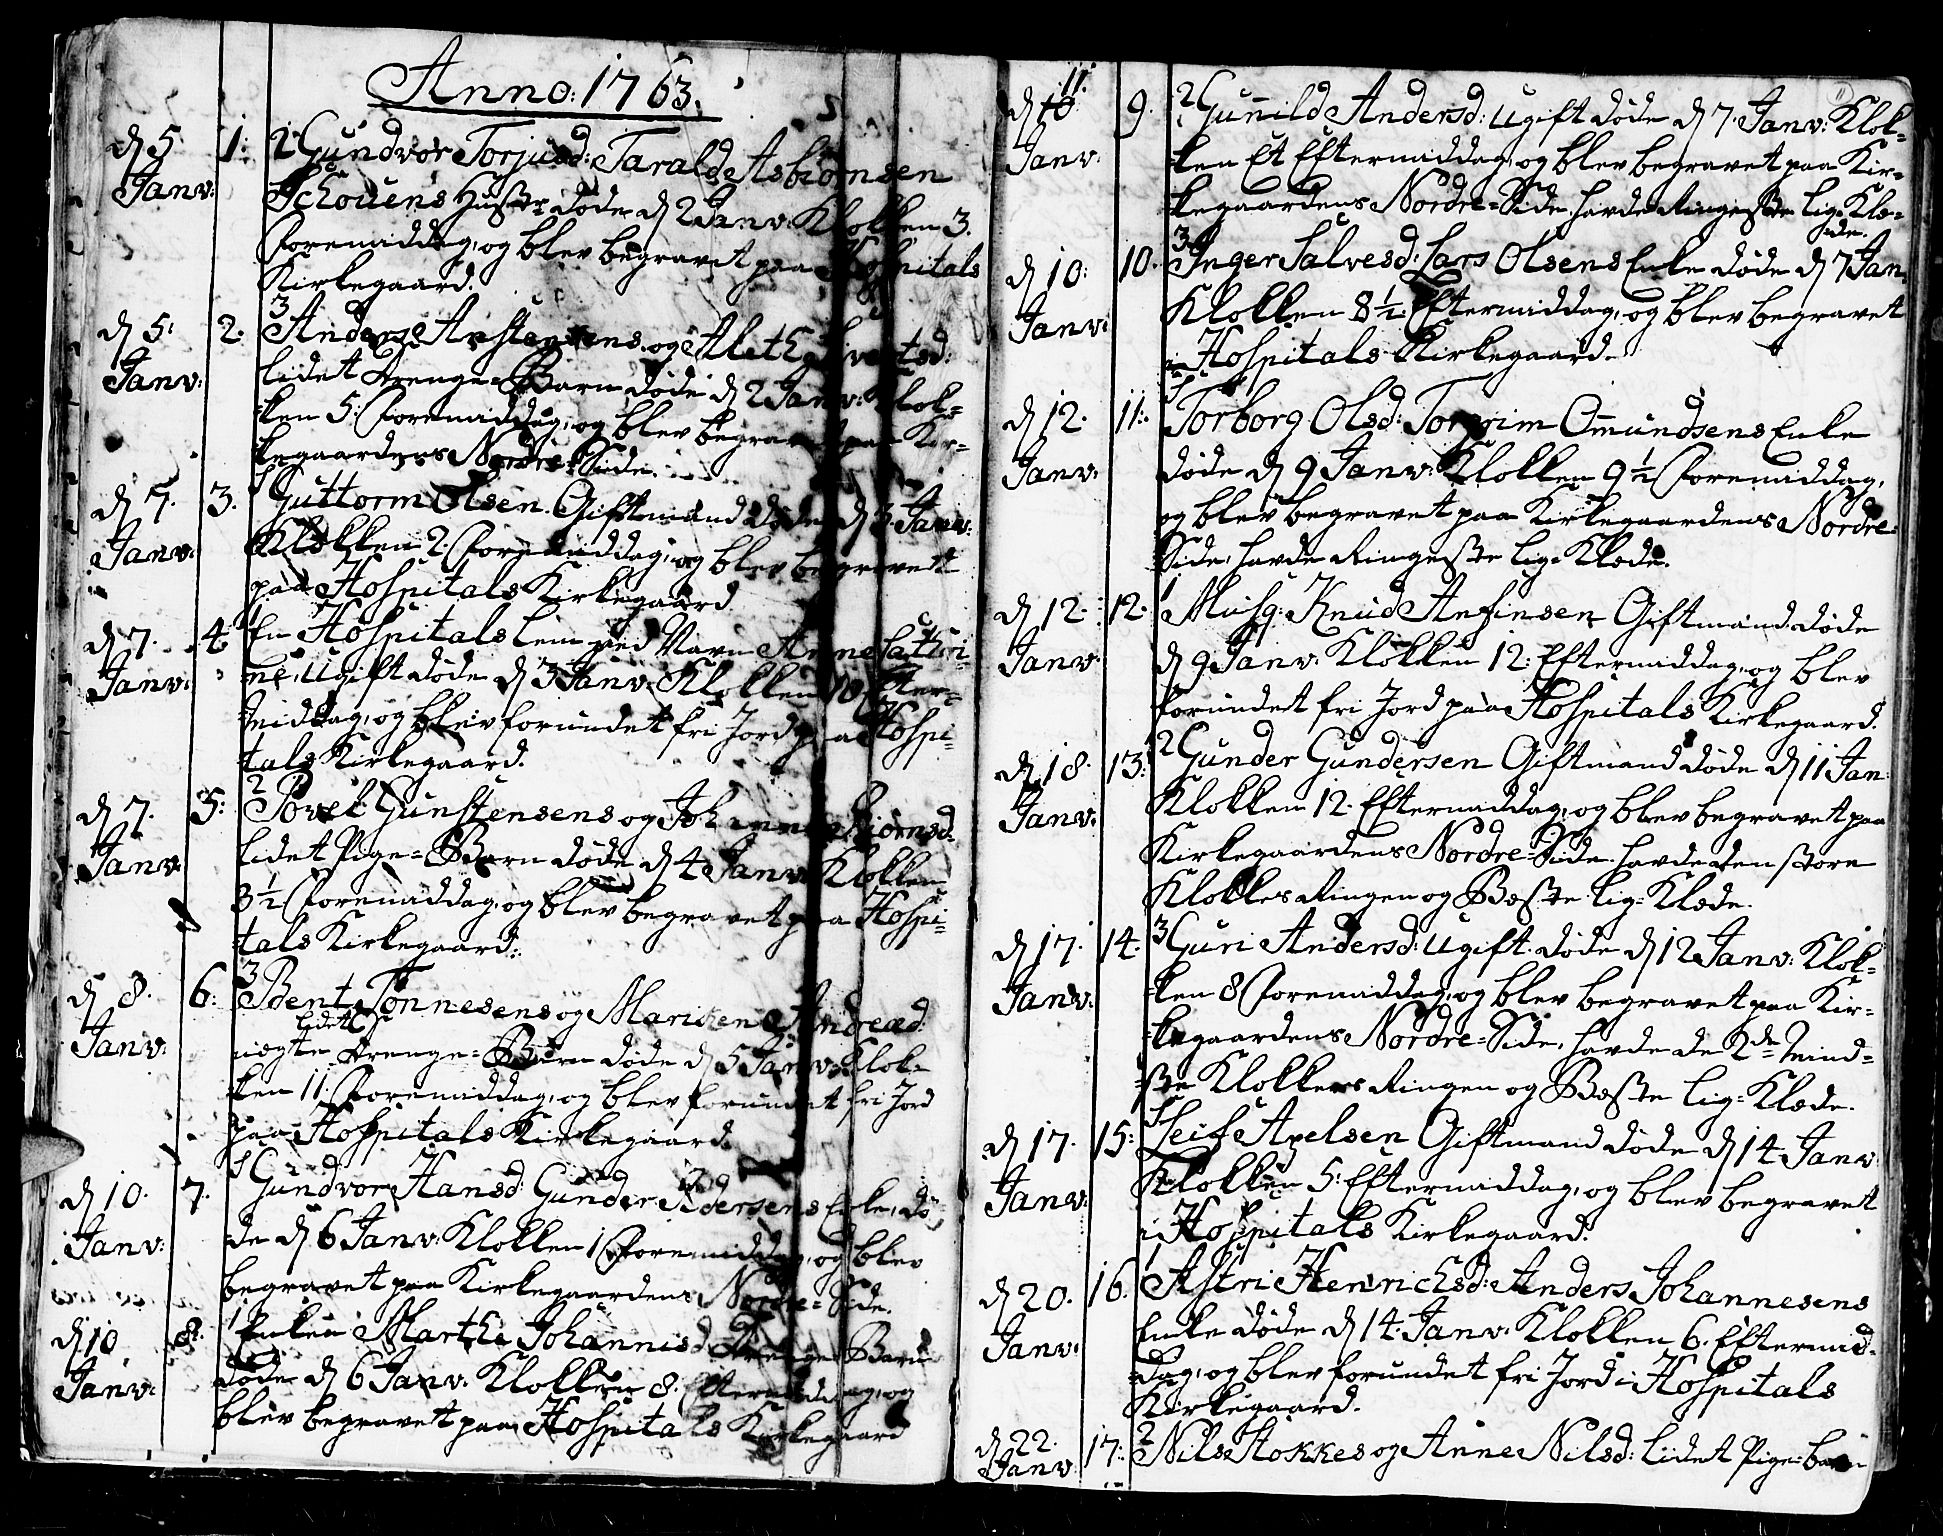 Anno: 1763.
d 5. Janv: 1. 2 Gundvor Torjusd: Tarald Asbiörnsen
Schouens Hustr døde d 2 Janv: Klokken 3.
Formiddag, og blev begravet paa Hospitals
Kirkegaard.
d 5: Janv: 2. 3 Anders Anstensens og Aleth
lidet Drenge-Barn døde d 2 Janv: Klok-
ken 5: Formiddag, og blev begravet paa Kir-
kegaardens Nordre-Side.
d 7. Janv: 3. Guttorm Olsen. Giftmand døde d 3. Janv:
Klokken 2. Formiddag, og blev begravet
paa Hospitals Kirkegaard
d 7. Janv: 4. 1 En Hospitals Lem ved Navn Anne Cathri-
ne, Ugift døde d 3 Janv: Klokken 10 Efter-
middag, og blev forundet fri Jord paa Hospi-
tals Kirkegaard.
d 7. Janv: 5: 2 Povel Gunstensens og Johanne Biörnsd:
lidet Pige-Barn døde d 4 Janv: Klokken
3½ Formiddag, og blev begravet paa Hospi-
tals Kirkegaard.
d 8. Janv: 6: 3 Bent Tönnesens og Maricken Andread:
lidet
uegte Drenge-Barn døde d 5 Janv: Klok-
ken 11. Formiddag, og blev forundet fri Jord
paa Hospitals Kirkegaard.
d 10. Janv: 7. Gundvor Hansd: Gunder Pedersens Enke, dø-
de d 6 Janv: Klokken 1 Formiddag, og blev
begravet paa Kirkegaardens Nordre-Side.
d 10 Janv: 8. 1 Enken Marthe Johannisd Drenge Barn
døde d 6 Janv: Klokken 8. Eftermiddag, og
blev begravet paa Hospitals Kirkegaard
d 11. Janv: 9. 2 Gunild Andersd: Ugift døde d 7. Janv: Klok-
ken Et Eftermiddag, og blev begravet paa Kir-
kegaardens Nordre-Side, havde Ringeste Lig-Klæ-
de.
d 10: Janv: 10. 3 Inger Salvesd: Lars Olsens Enke døde d 7 Jan:
Klokken 8½ Eftermiddag, og blev begravet
i Hospitals Kirkegaard.
d 12. Janv: 11: Torborg Olsd: Torgrim Omundsens Enke
døde d 9 Janv: Klokken 9½ Formiddag,
og blev begravet paa Kirkegaardens Nordre
Side, havde Ringeste Lig-Klæde.
d 12. Janv: 12. 1 Musq: Knud Anfinsen Giftmand døde
d 9 Janv: Klokken 12: Eftermiddag, og blev
forundet fri Jord paa Hospitals Kirkegaard.
d 18. Janv: 13: 2 Gunder Gundersen Giftmand døde d 11 Jan:
Klokken 12. Eftermiddag, og blev begravet paa
Kirkegaardens Nordre-Side, havde den store
Klokkes Ringen og Beste Lig-Klæde.
d 17. Janv: 14. 3 Guri Andersd: Ugift døde d 12 Janv: Klok-
ken 8 Formiddag, og blev begravet paa Kir-
kegaardens Nordre-Side, havde de 2de Mind-
ste Klokkers Ringen og Beste Lig-Klæde.
d 17. Janv: 15: Leif Axelsen Giftmand døde d 14 Janv:
Klokken 5: Eftermiddag, og blev begravet
i Hospitals Kirkegaard.
d 20. Janv: 16. 1 Astri Henrichsd: Anders Johannesens
Enke døde d 14. Janv: Klokken 6. Eftermid-
dag, og blev forundet fri Jord i Hospitals
Kirkegaard.
d 22. Janv: 17: 2 Nils Stokkes og Anne Nilsd: lidet Pige-barn